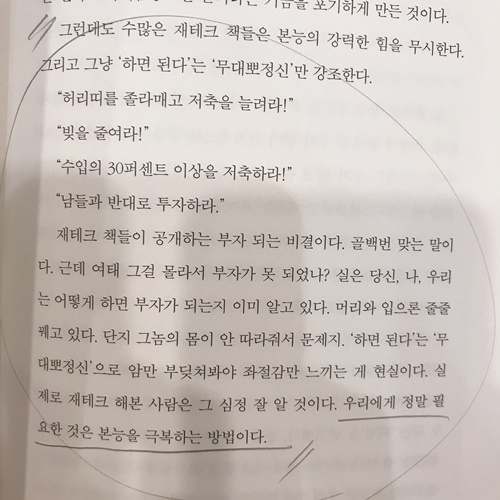 기쁨을 포기하게 만든 것이다.
그런데도 수많은 재테크 책들은 본능의 강력한 힘을 무시한다.
그리고 그냥 ‘하면 된다’는 ‘무대뽀정신’만 강조한다.
“허리띠를 졸라매고 저축을 늘려라!”
“빚을 줄여라!”
“수입의 30퍼센트 이상을 저축하라!”
“남들과 반대로 투자하라.”
재테크 책들이 공개하는 부자 되는 비결이다. 골백번 맞는 말이
다. 근데 여태 그걸 몰라서 부자가 못 되었나? 실은 당신, 나, 우리
는 어떻게 하면 부자가 되는지 이미 알고 있다. 머리와 입으론 줄줄
꿰고 있다. 단지 그놈의 몸이 안 따라줘서 문제지. ‘하면 된다’는 ‘무
대뽀정신’으로 암만 부딪쳐봐야 좌절감만 느끼는 게 현실이다. 실
제로 재테크 해본 사람은 그 심정 잘 알 것이다. 우리에게 정말 필
요한 것은 본능을 극복하는 방법이다.